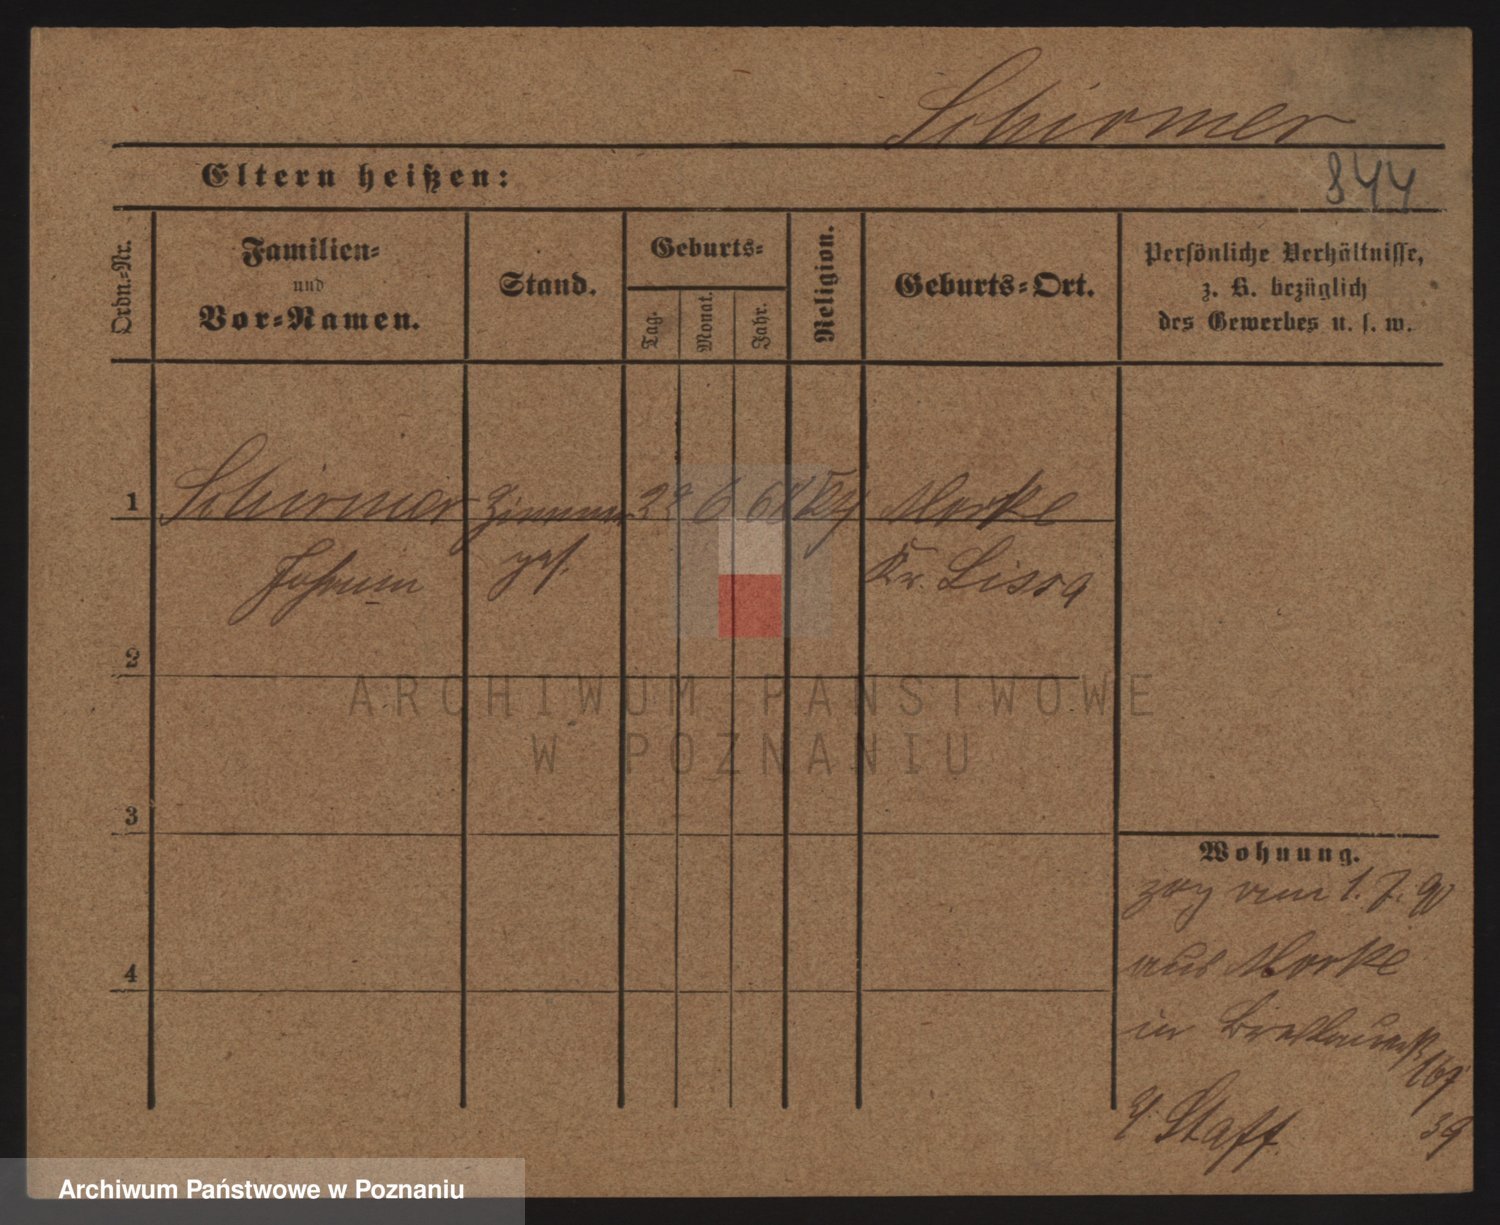 Schirmer
844
Eltern heißen:
Ordn.-Nr.
Familien-
und
Vor-Namen.
Stand.
Geburts-
Tag.
Monat.
Jahr.
Religion.
Geburts-Ort.
Persönliche Verhältnisse,
z. B. bezüglich
des Gewerbes u. s. w.
1 Schirmer Zimmer 6 Morke
Johann ges. Kr. Lissa
2
3
4
Wohnung.
zog am 1. 7. 90
aus Morke
in Breslauerstr.
39
ARCHIWUM PAŃSTWOWE
W POZNANIU
Archiwum Państwowe w Poznaniu